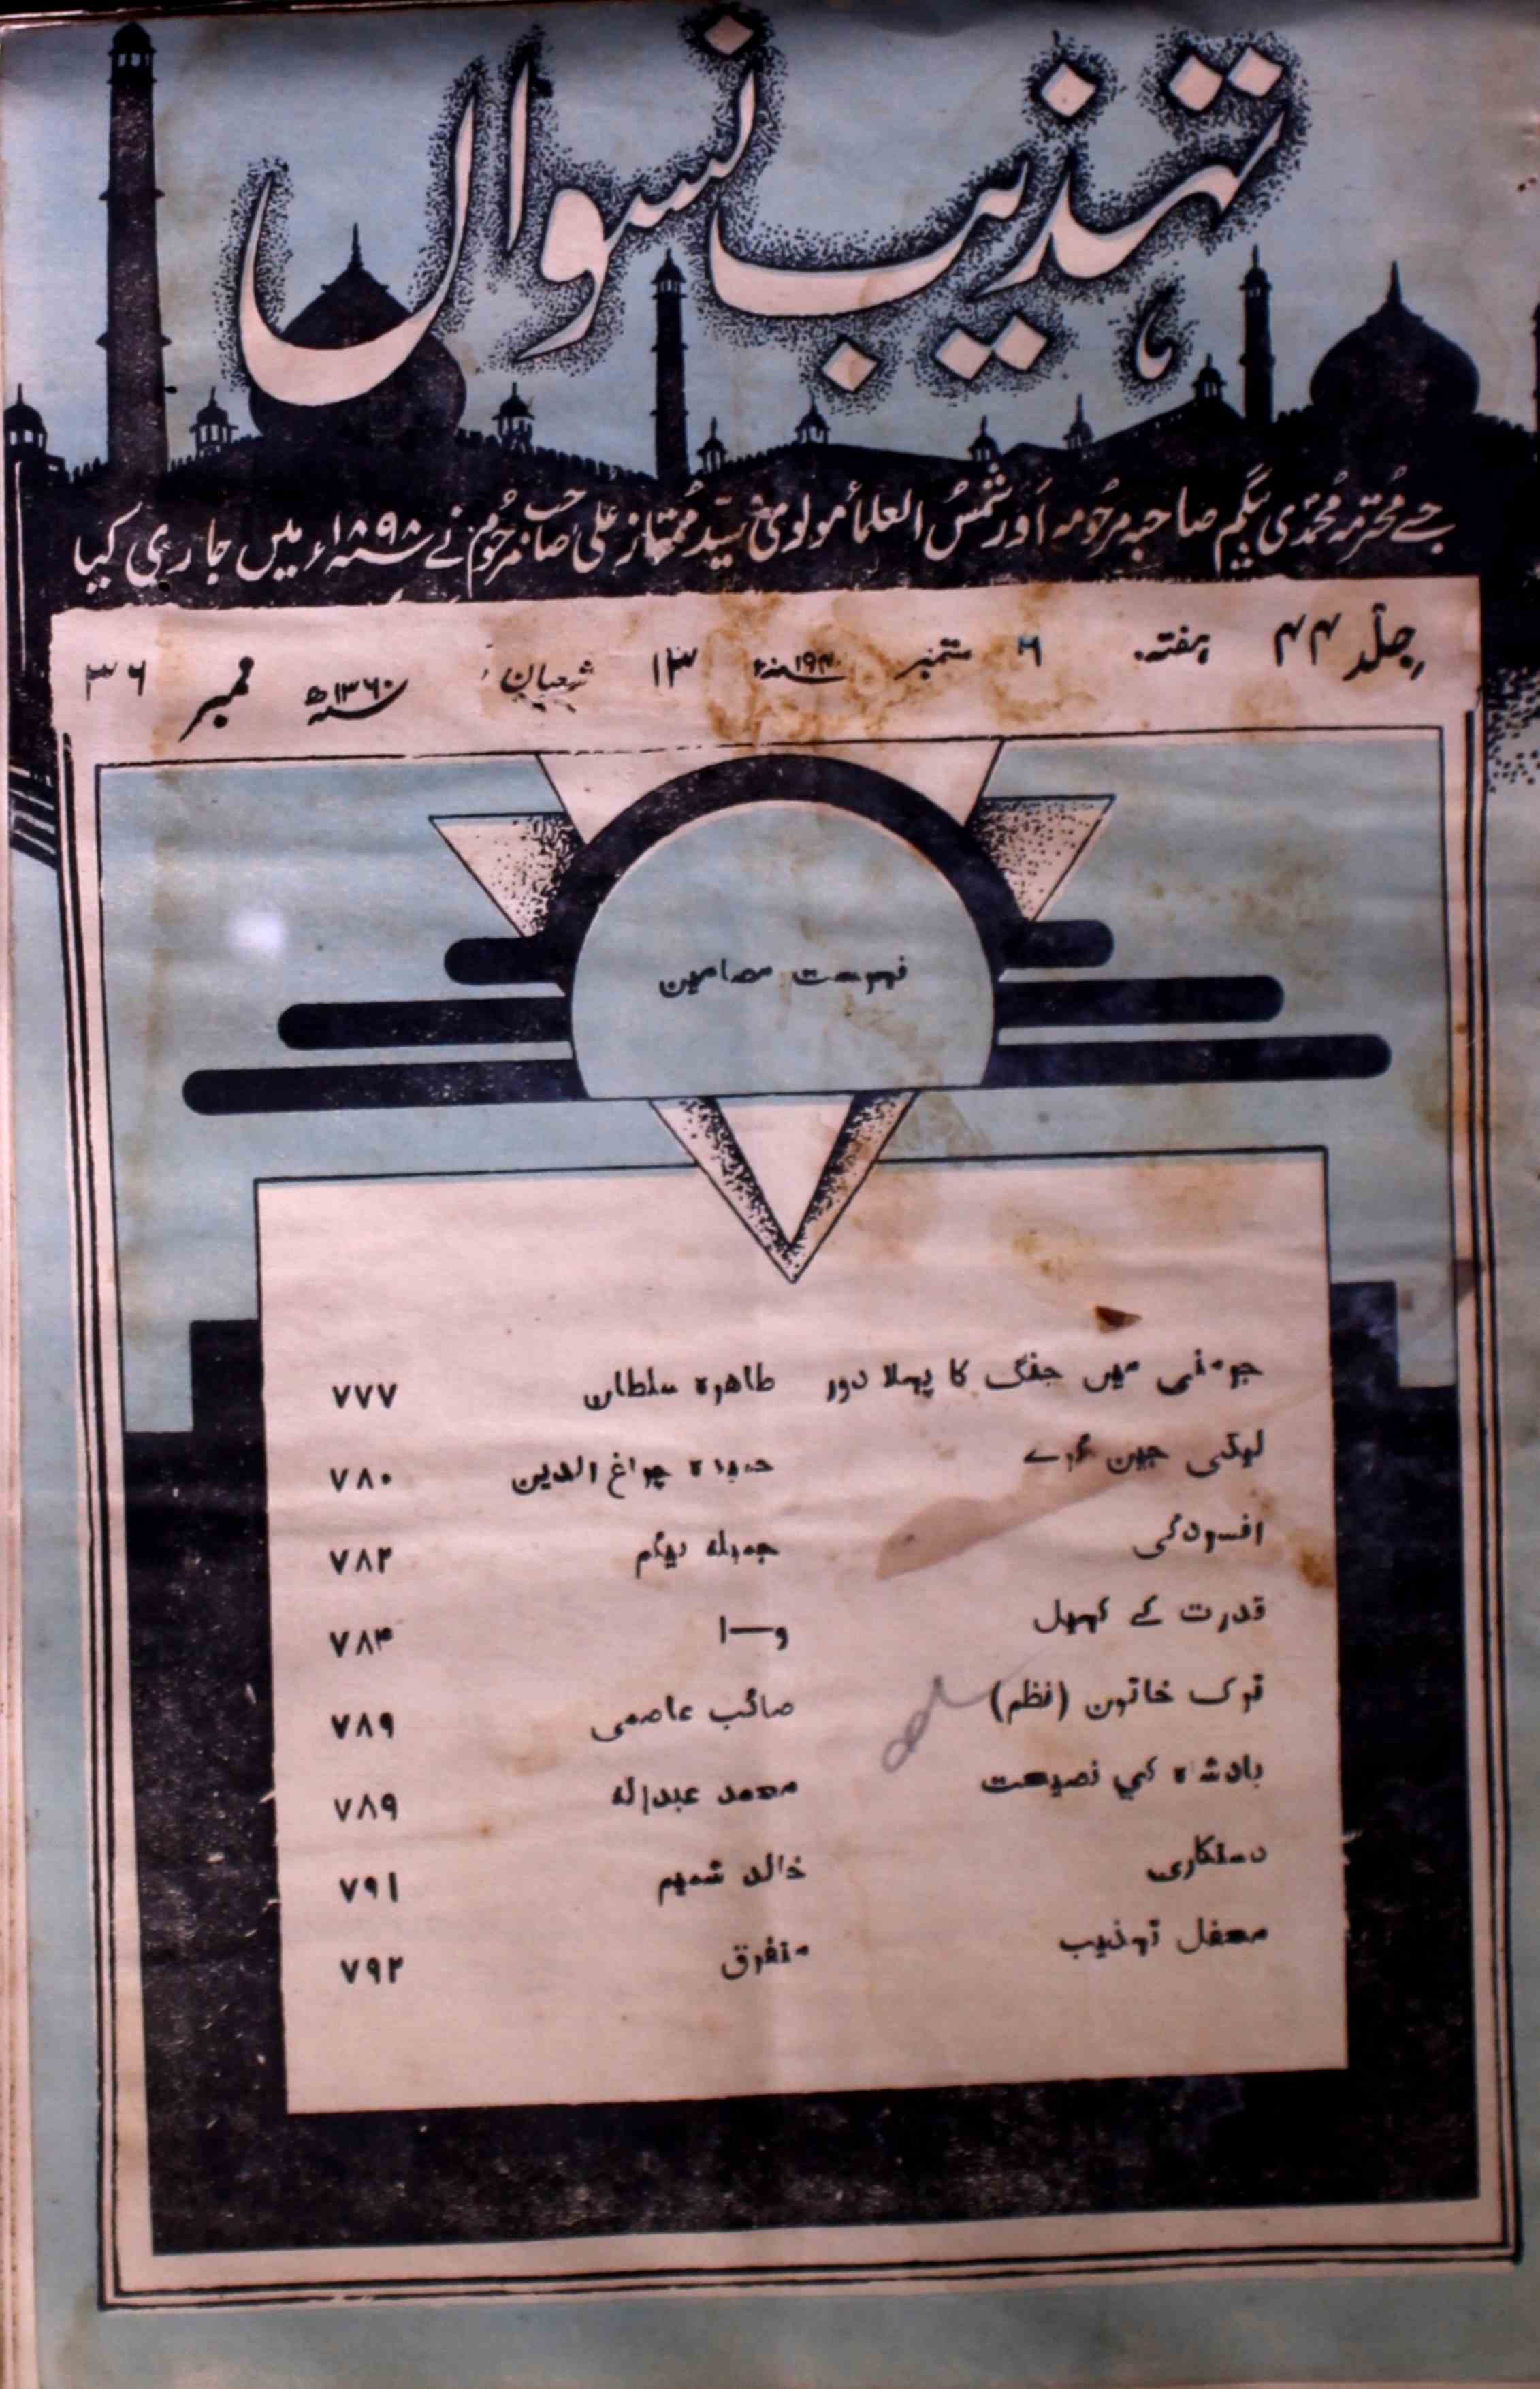 تہذیب نسواں
جسے محترمہ محمدی بیگم صاحبہ مرحومہ اور شمس العلماء مولوی سید ممتاز علی صاحب مرحوم نے ۱۸۹۸ء میں جاری کیا
جلد ۴۴ ہفتہ ۶ ستمبر ۱۹۴۰ء ۱۳ شعبان ۱۳۶۰ھ نمبر ۳۶
فہرست مضامین
جرمنی میں جنگ کا پہلا دور طاهرہ سلطان ۷۷۷
لیڈی جین گرے حمیدہ چراغ الدین ۷۸۰
افسردگی جمیلہ بیگم ۷۸۲
قدرت کے کھیل و—ا ۷۸۴
ترک خاتون (نظم) صائب عاصمی ۷۸۹
بادشاہ کی نصیحت محمد عبداللہ ۷۸۹
دستکاری خالد شمیم ۷۹۱
محفل تہذیب متفرق ۷۹۲